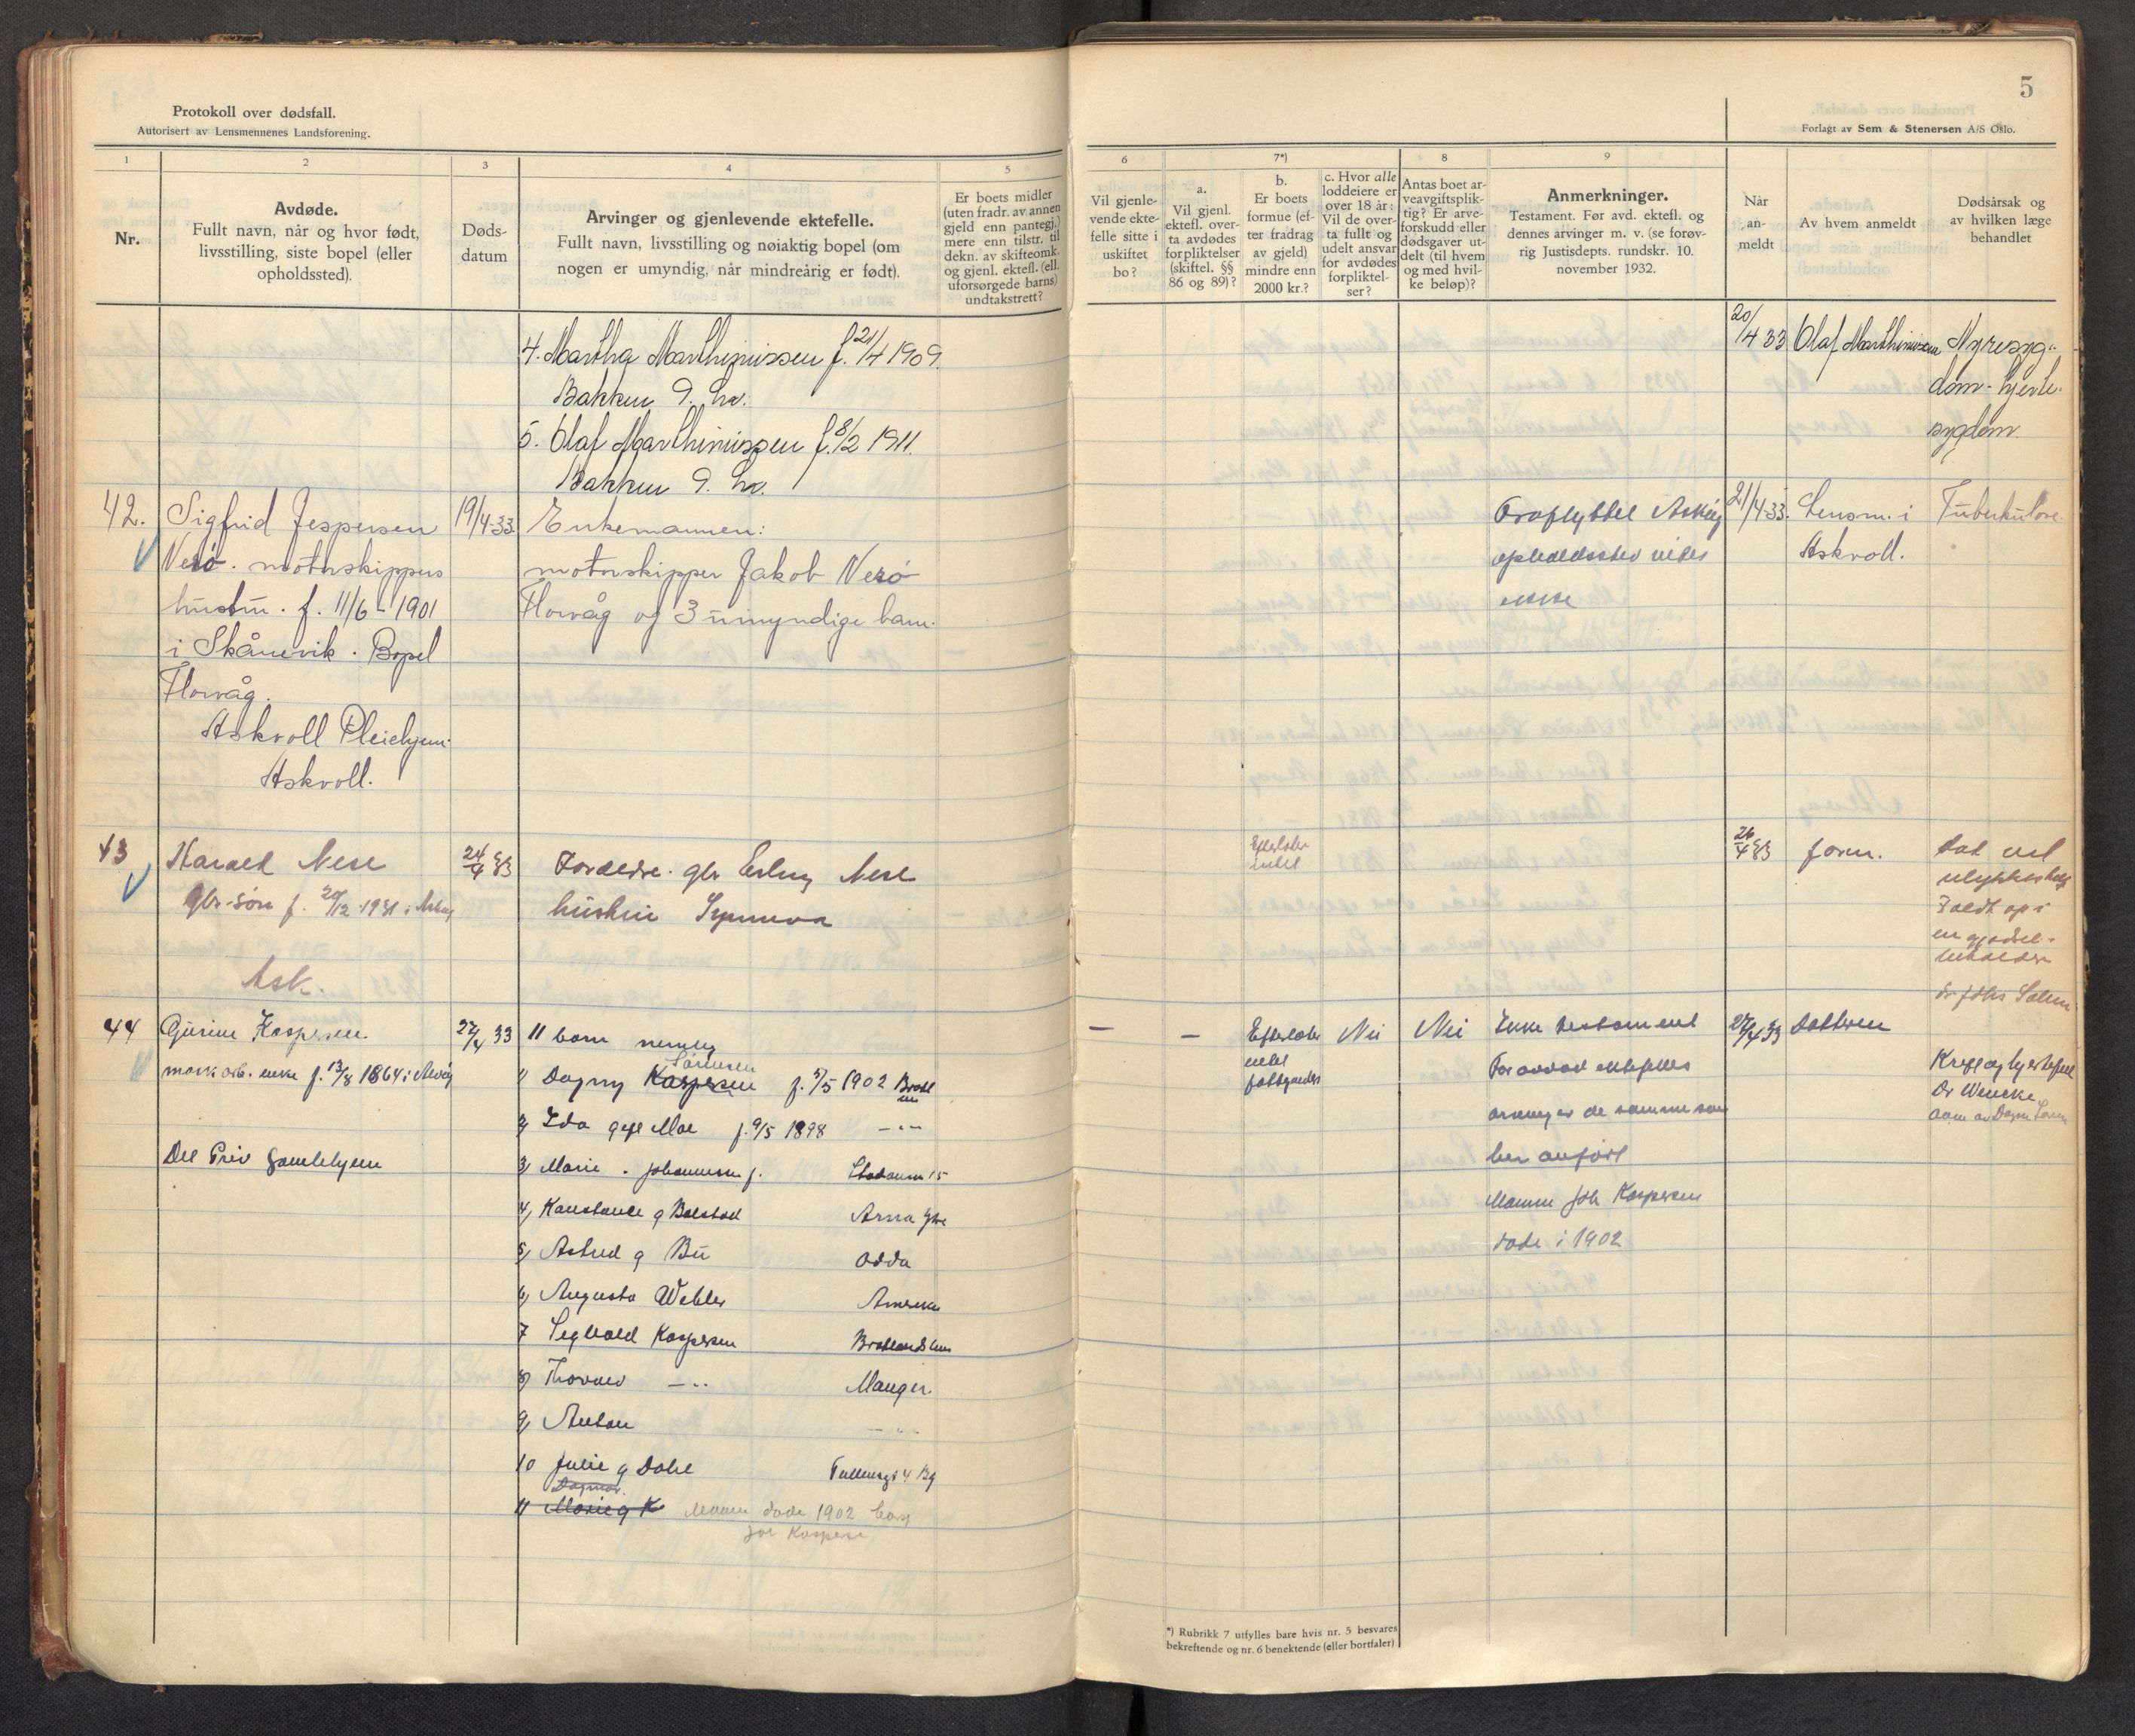 Protokoll over dødsfall.
Autorisert av Lensmennenes Landsforening.
5
Forlagt av Sem & Stenersen A/S Oslo.
1
2
3
4
5
6
7*)
8
9
Nr.
Avdøde.
Fullt navn, når og hvor født,
livsstilling, siste bopel (eller
opholdssted).
Døds-
datum
Arvinger og gjenlevende ektefelle.
Fullt navn, livsstilling og nøiaktig bopel (om
nogen er umyndig, når mindreårig er født).
Er boets midler
(uten fradr. av annen
gjeld enn pantegj.)
mere enn tilstr. til
dekn. av skifteomk.
og gjenl. ektefl. (ell.
uforsørgede barns)
undtakstrett?
Vil gjenle-
vende ekte-
felle sitte i
uskiftet
bo?
a.
Vil gjenl.
ektefl. over-
ta avdødes
forpliktelser
(skiftel. §§
86 og 89)?
b.
Er boets
formue (ef-
ter fradrag
av gjeld)
mindre enn
2000 kr.?
c. Hvor alle
loddeiere er
over 18 år:
Vil de over-
ta fullt og
udelt ansvar
for avdødes
forpliktel-
ser?
Antas boet ar-
veavgiftsplik-
tig? Er arve-
forskudd eller
dødsgaver ut-
delt (til hvem
og med hvil-
ke beløp)?
Anmerkninger.
Testament. Før avd. ektefl. og
dennes arvinger m. v. (se forøv-
rig Justisdepts. rundskr. 10.
november 1932.
Når
an-
meldt
Av hvem anmeldt
Dødsårsak og
av hvilken læge
behandlet
4. Martha Marthinissen f. 21/4 1909.
Bakken
5. Olaf Marthinissen f. 8/2 1911.
Bakken
20/4 33 Olaf Marthinissen Nyresyg-
dom - hjerte-
sygdom.
42. Sigfrid Jespersen 19/4-33. Enkemannen:
Nesø. motorskippers motorskipper Jakob Nesø
hustru. f. 11/6 - 1901 Florvåg og 3 umyndige barn.
i Skånevik. Bopel
Florvåg.
Askvoll Pleiehjem.
Askvoll.
Fraflyttet Askøy 21/4-33. Lensm. i Tuberkulose.
opholdssted vites Askvoll.
ikke
43 Harald Nese 24/4 33 Foreldre. gbr Erling Nese
gbr. søn f. 20/12 1931 i Askøy hustru Synneva
Ask.
Efterlater
intet
26/4 33 foren. død ved
Faldt op i
en gjødsel-
44 Gurine Kaspersen. 27/4 33 11 barn nemlig
enke f. 13/8 1864 i
Det Priv Gamlehjem
1) Dagny Kaspersen Sørensen f. 5/5 1902
2) Ida gift Moe f. 9/5 1898 -"-
3) Marie . Johannessen f.
4) Konstance g Bolstad Arna
5) Astrid g Bu Odda
6) Augusta Amerika
7 Kaspersen
8) -"- Manger.
9) Anton -"-
10 Julie g Dahl
Dagmar.
11 Marie g K Mann døde 1902
Joh Kaspersen
— — Efterlater Nei Nei Ikke testament 27/4 33 Datteren
intet
For avdød ektefelles
arvinger de samme som
her anført
Mannen Joh Kaspersen
døde i 1902
Dr Wencke
*) Rubrikk 7 utfylles bare hvis nr. 5 besvares
bekreftende og nr. 6 benektende (eller bortfaler)